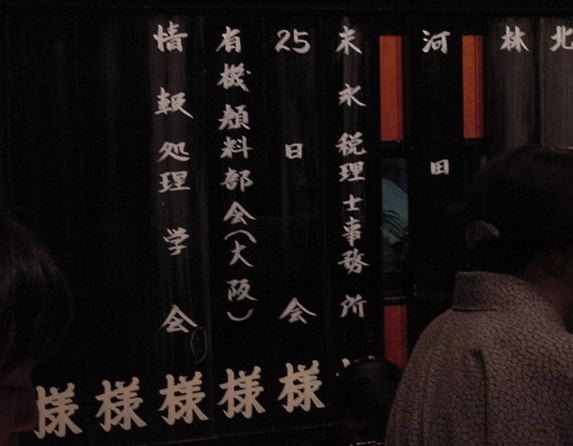 北
林
河田
末永税理士事務所 様
25日会 様
有機顔料部会(大阪) 様
情報処理学会 様
様
様